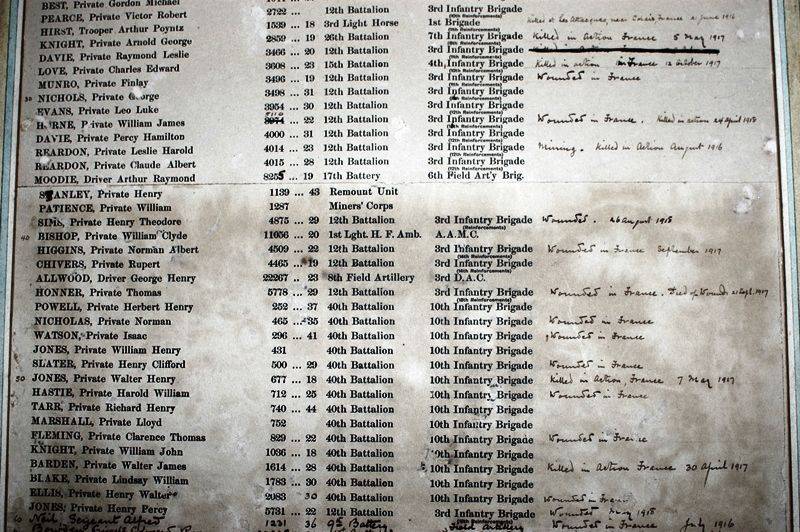 BEST, Private Gordon Michael 12th Battalion 3rd Infantry Brigade
PEARCE, Private Victor Robert 2722 ... 12th Battalion 3rd Infantry Brigade
HIRST, Trooper Arthur Poyntz 1539 ... 18 3rd Light Horse 1st Brigade Killed at Les near Calais France 2 June 1916
KNIGHT, Private Arnold George 2859 ... 19 26th Battalion 7th Infantry Brigade Killed in Action France 5 May 1917
DAVIE, Private Raymond Leslie 3466 ... 20 12th Battalion 3rd Infantry Brigade
LOVE, Private Charles Edward 3608 ... 23 15th Battalion 4th Infantry Brigade Killed in action in France 12 October 1917
MUNRO, Private Finlay 3496 ... 19 12th Battalion 3rd Infantry Brigade Wounded in France
30 NICHOLS, Private George 3498 ... 31 12th Battalion 3rd Infantry Brigade
EVANS, Private Leo Luke 3954 ... 30 12th Battalion 3rd Infantry Brigade
HORNE, Private William James ... 22 12th Battalion 3rd Infantry Brigade Wounded in France. Killed in action 24 April 1918
DAVIE, Private Percy Hamilton 4000 ... 31 12th Battalion 3rd Infantry Brigade
REARDON, Private Leslie Harold 4014 ... 23 12th Battalion 3rd Infantry Brigade Missing. Killed in Action August 1916
REARDON, Private Claude Albert 4015 ... 28 12th Battalion 3rd Infantry Brigade
MOODIE, Driver Arthur Raymond 8255 ... 19 17th Battery 6th Field Art'y Brig.
STANLEY, Private Henry 1139 ... 43 Remount Unit
PATIENCE, Private William 1287 Miners' Corps
SIMS, Private Henry Theodore 4875 ... 29 12th Battalion 3rd Infantry Brigade (Reinforcements) Wounded. 26 August 1918
40 BISHOP, Private William Clyde 11056 ... 20 1st Lght. H. F. Amb. A.A.M.C.
HIGGINS, Private Norman Albert 4509 ... 22 12th Battalion 3rd Infantry Brigade Wounded in France September 1917
CHIVERS, Private Rupert 4465 ... 19 12th Battalion 3rd Infantry Brigade
ALLWOOD, Driver George Henry 22267 .. 23 8th Field Artillery 3rd D.A.C.
HONNER, Private Thomas 5778 ... 29 12th Battalion 3rd Infantry Brigade Wounded in France. Died of Wounds 21 Sept. 1917
POWELL, Private Herbert Henry 252 ... 37 40th Battalion 10th Infantry Brigade
NICHOLAS, Private Norman 465 ... 35 40th Battalion 10th Infantry Brigade Wounded in France
WATSON, Private Isaac 296 ... 41 40th Battalion 10th Infantry Brigade Wounded in France
JONES, Private William Henry 431 40th Battalion 10th Infantry Brigade
SLATER, Private Henry Clifford 500 ... 29 40th Battalion 10th Infantry Brigade Wounded in France
50 JONES, Private Walter Henry 677 ... 18 40th Battalion 10th Infantry Brigade Killed in Action, France 7 May 1917
HASTIE, Private Harold William 712 ... 25 40th Battalion 10th Infantry Brigade Wounded in France
TARR, Private Richard Henry 740 ... 44 40th Battalion 10th Infantry Brigade
MARSHALL, Private Lloyd 752 40th Battalion 10th Infantry Brigade
FLEMING, Private Clarence Thomas 829 ... 22 40th Battalion 10th Infantry Brigade Wounded in France
KNIGHT, Private William John 1036 ... 18 40th Battalion Infantry Brigade
BARDEN, Private Walter James 1614 ... 28 40th Battalion 10th Infantry Brigade Killed in Action France 30 April 1917
BLAKE, Private Lindsay William 1783 ... 30 40th Battalion 10th Infantry Brigade
ELLIS, Private Henry Walter 2083 30 40th Battalion 10th Infantry Brigade Wounded in France
JONES, Private Henry Percy 5731 ... 22 12th Battalion 3rd Infantry Brigade Wounded May 1918
60 Neil, Sergeant Alfred 1231 36 9th Battery Field Artillery Wounded in France July 1916